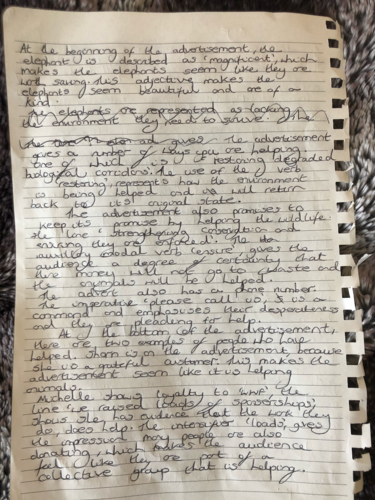 At the beginning of the advertisement, the
elephant is described as 'magnificent', which
makes the elephants seem like they are
worth saving. This adjective makes the
elephants seem beautiful and are of a
kind.
The elephants are represented as lacking
the environment they need to survive. The
The advertisement
gives a number of ways you are helping
one of which is 'restoring degraded
biological corridors'. The use of the verb
'restoring' represents how the environment
is being helped and will return
back to it's original state.
The advertisement also promises to
keep its promise by helping the wildlife
the line 'strengthening conservation and
ensuring they are enforced'. The
auxillary modal verb 'ensure' gives the
audience a degree of certainty that
their money will not go to waste and
the animals will be helped.
The advert also has a phone number.
The imperative 'please call us', is a
command and emphasises their desperateness
and they are pleading for help.
At the bottom of the advertisement,
there are two examples of people who have
helped. Sharn is on the advertisement because
she is a grateful customer. This makes the
advertisement seem like it is helping
animals.
Michelle shows loyalty to 'WWF', the
line 'we raised loads of sponsorships',
shows she has evidence that the work they
do, does help. The intensifier 'loads', gives
the impression many people are also
donating, which makes the audience
feel like they are part of a
collective group that is helping.